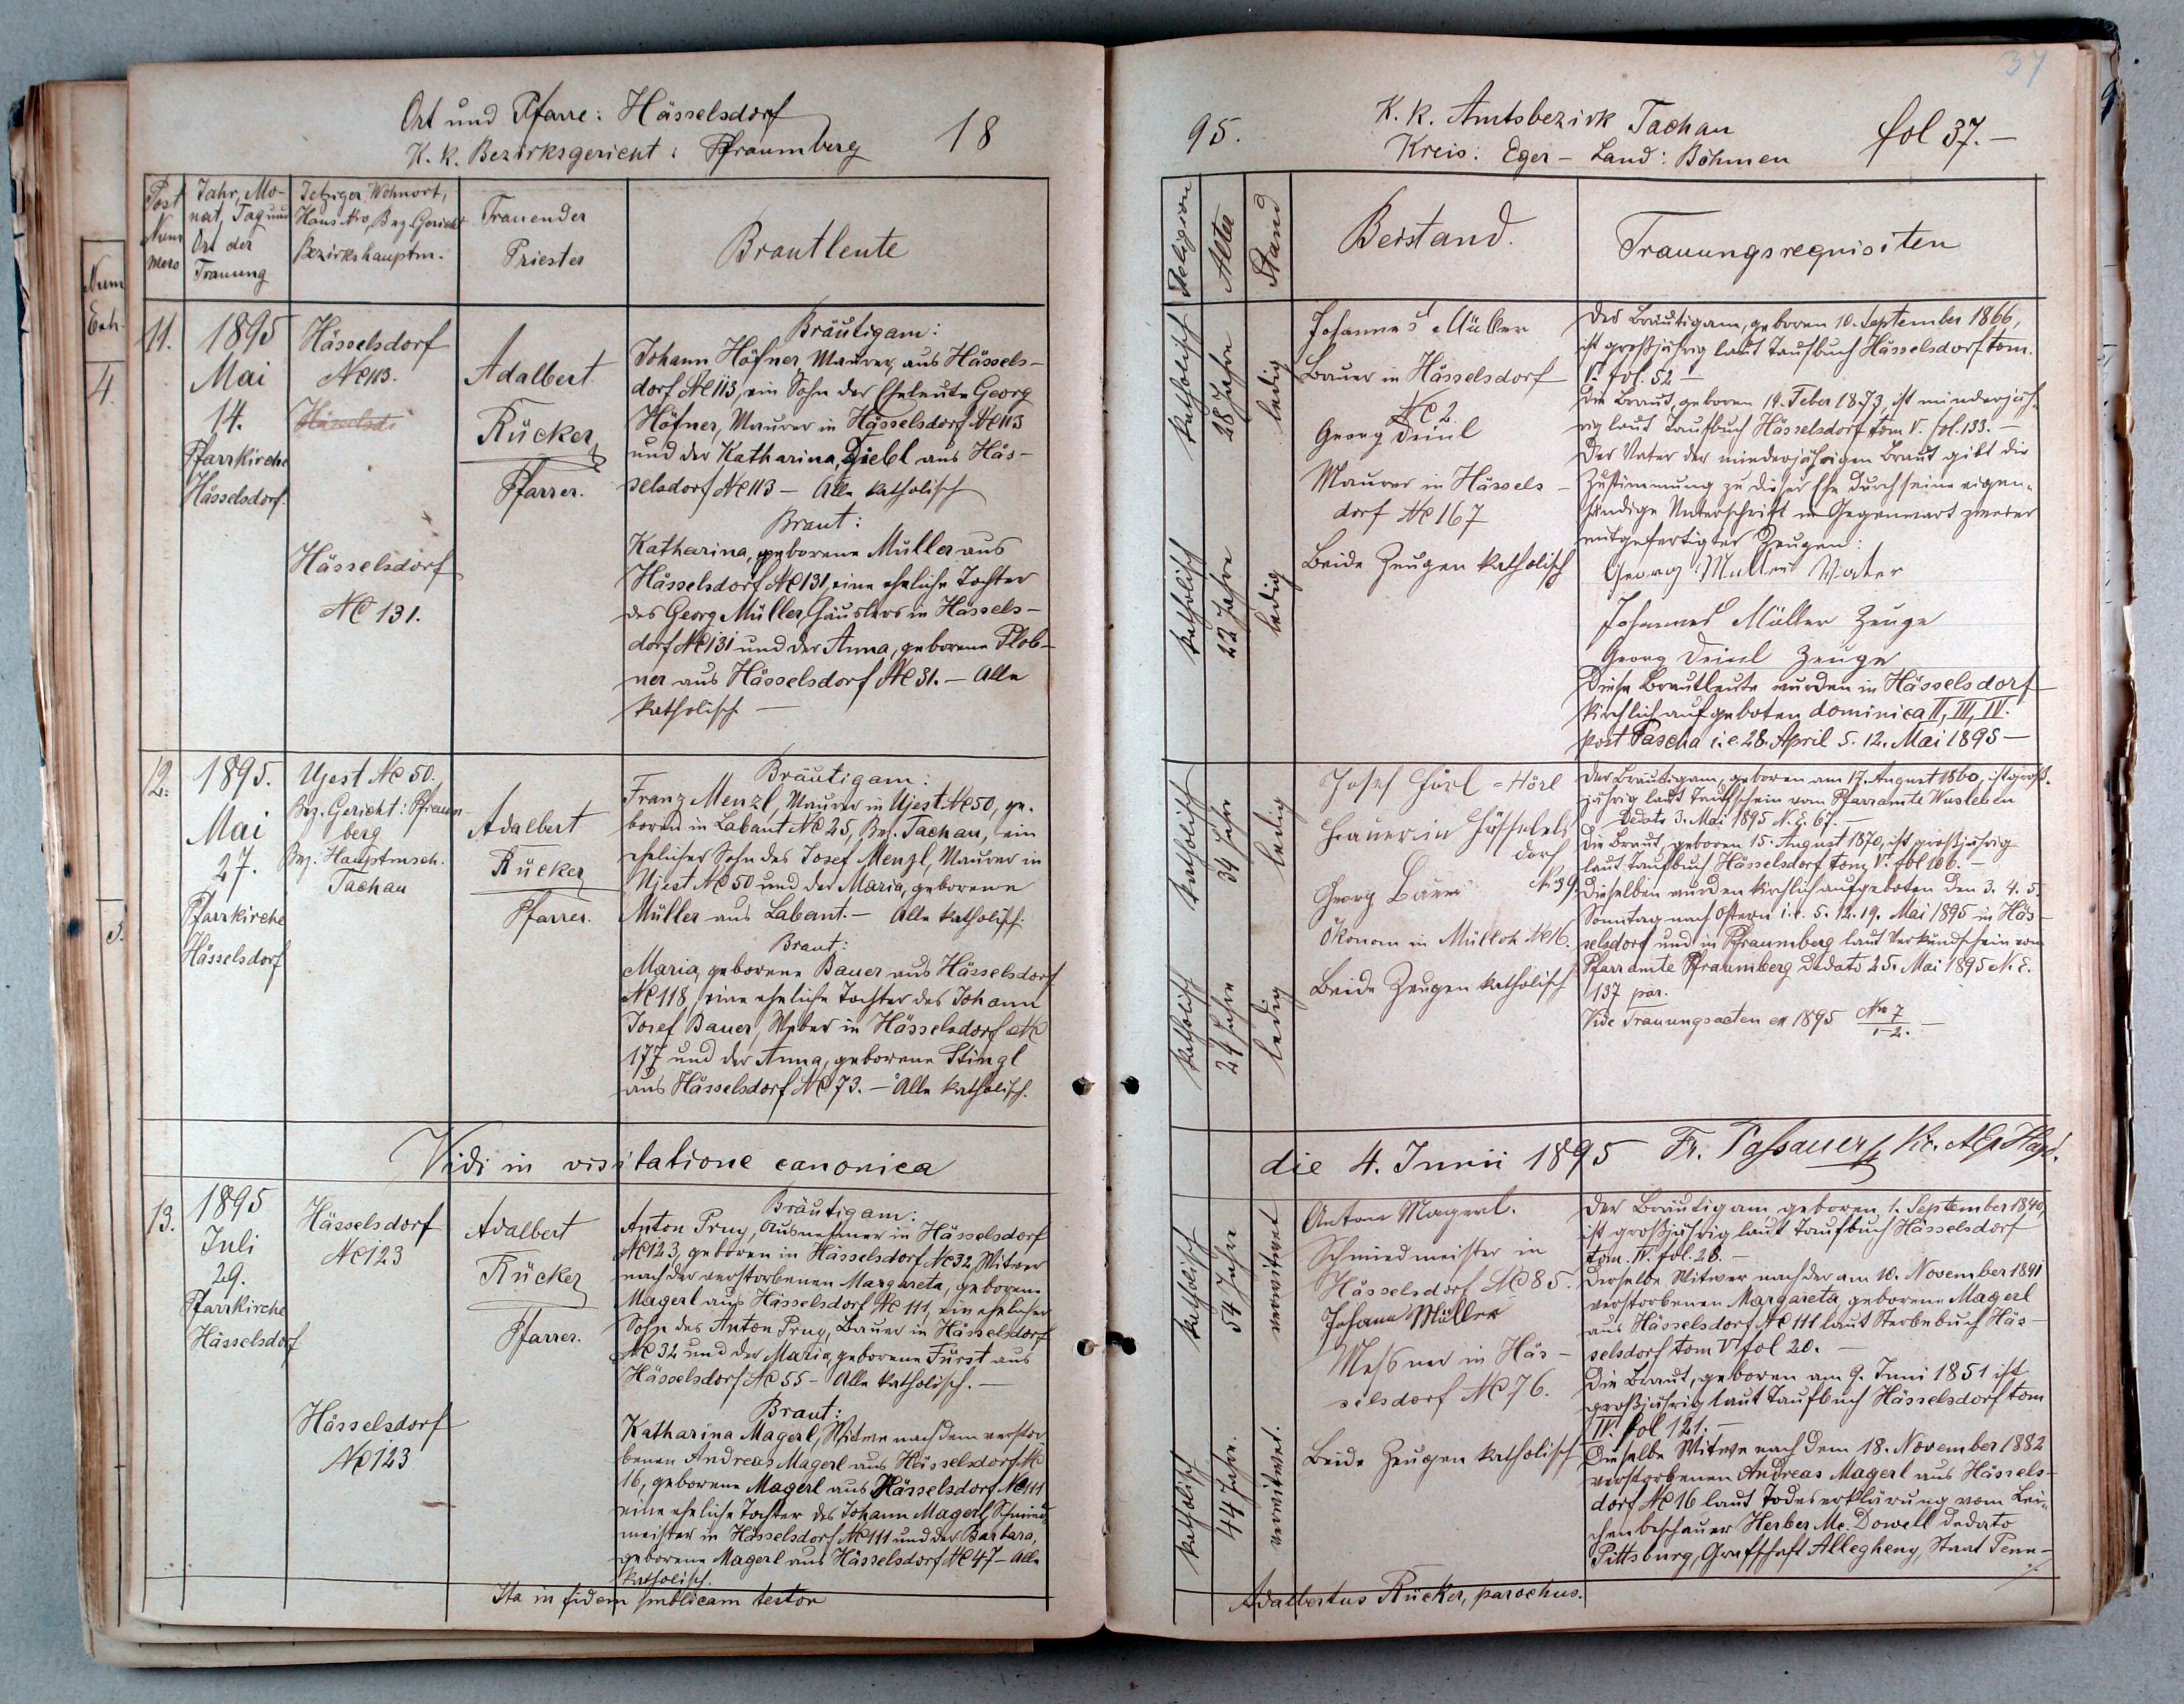 Ort und Pfarre: Hässelsdorf
K. k. Bezirksgericht: Pfraumberg
18
Post Num mero
Jahr, Mo-
nat, Tag und
Ort der
Trauung
Jetziger Wohnort,
Haus Nro, Bez. Gericht
Bezirkshauptm.
Trauender
Priester
Brautleute
Num
Exh.
4.
5.
11.
1895
Mai
14.
Pfarrkirche
Hässelsdorf.
Hässelsdorf
No 113.
Hässelsdorf
No 131.
Adalbert
Rücker
Pfarrer.
Bräutigam:
Johann Höfner, Maurer, aus Hässels-
dorf No 113, ein Sohn der Eheleute Georg
Höfner, Maurer in Hässelsdorf No 113
und der Katharina, Diebl aus Häs-
selsdorf No 113 – Alle katholisch
Braut:
Katharina, geborene Müller aus
Hässelsdorf No 131, eine eheliche Tochter
des Georg Müller, Häuslers in Hässels-
dorf No 131 und der Anna, geborene Plob-
ner aus Hässelsdorf No 31. – Alle
katholisch –
12.
1895.
Mai
27.
Pfarrkirche
Hässelsdorf
Ujest No 50.
Bez. Gericht: Pfraum-
berg
Bez. Hauptmsch.
Tachau
Adalbert
Rücker
Pfarrer.
Bräutigam:
Franz Menzl, Maurer in Ujest No 50, ge-
boren in Labant No 25, Bez. Tachau, ein
ehelicher Sohn des Josef Menzl, Maurer in
Ujest No 50 und der Maria, geborene
Müller aus Labant. – Alle katholisch.
Braut:
Maria, geborene Bauer aus Hässelsdorf
No 118, eine eheliche Tochter des Johann
Josef Bauer, Weber in Hässelsdorf No
177 und der Anna, geborene Stingl
aus Hässelsdorf No 73. – Alle katholisch.
Vidi in visitatione canonica
13.
1895
Juli
29.
Pfarrkirche
Hässelsdorf
Hässelsdorf
No 123
Hässelsdorf
No 123
Adalbert
Rücker
Pfarrer.
Bräutigam:
Anton Pruy, Ausnehmer in Hässelsdorf
No 123, geboren in Hässelsdorf No 32, Witwer
nach der verstorbenen Margareta, geborene
Magerl aus Hässelsdorf No 111, ein ehelicher
Sohn des Anton Pruy, Bauer in Hässelsdorf
No 32 und der Maria, geborene Fürst aus
Hässelsdorf No 55 – Alle katholisch. –
Braut:
Katharina Magerl, Witwe nach dem verstor
benen Andreas Magerl aus Hässelsdorf No
16, geborene Magerl aus Hässelsdorf No 111
eine eheliche Tochter des Johann Magerl, Schmied-
meister in Hässelsdorf No 111 und der Barbara,
geborene Magerl aus Hässelsdorf No 47 – Alle
katholisch.
Ita in fidem publicam testor
37
95.
K. k. Amtsbezirk Tachau
Kreis: Eger – Land: Böhmen
fol 37. –
Religion
Alter
Stand
Beistand.
Trauungsrequisiten
katholisch
28 Jahre
ledig
katholisch
22 Jahre
ledig
Johannes Müller
Bauer in Hässelsdorf
No 2
Georg Deinl
Maurer in Hässels-
dorf No 167
Beide Zeugen katholisch
Der Bräutigam, geboren 10. September 1866,
ist großjährig laut Taufbuch Hässelsdorf tom.
V. fol. 52 –
Die Braut, geboren 19. Feber 1873 ist minderjäh-
rig laut Taufbuch Hässelsdorf tom V. fol. 133. –
Der Vater der minderjährigen Braut gibt die
Zustimmung zu dieser Ehe durch seine eigen-
händige Unterschrift in Gegenwart zweier
mitgefertigter Zeugen:
Georg Müller Vater
Johannes Müller Zeuge
Georg Deinl Zeuge
Diese Brautleute wurden in Hässelsdorf
kirchlich aufgeboten dominica II, III, IV.
post Pascha i.e. 28. April 5. 12. Mai 1895 –
katholisch
34 Jahre
ledig
katholisch
24 Jahre
ledig
Josef Hörl = Hörl
in Hässelsdorf
No 39
Georg Bauer
Ökonom in Mülloh No 16.
Beide Zeugen katholisch
Der Bräutigam, geboren am 17. August 1860, ist groß-
jährig laut Taufschein vom Pfarramte Wusleben
Dedato 3. Mai 1895 N. E. 67. –
Die Braut, geboren 15. August 1870, ist großjährig
laut Taufbuch Hässelsdorf tom V. fol 106. –
Dieselben wurden kirchlich aufgeboten den 3. 4. 5.
Sonntag nach Ostern i.e. 5. 12. 19. Mai 1895 in Häs-
selsdorf und in Pfraumberg laut Verkündschein vom
Pfarramte Pfraumberg Dedato 25. Mai 1895 N. E.
137 par.
Vide Trauungsacten ex 1895 Nro 7
1–2. –
die 4. Junii 1895 Fr. Passauer
katholisch
54 Jahre
verwitwet
katholisch
44 Jahre.
verwitwet.
Anton Magerl.
Schmiedmeister in
Hässelsdorf No 85.
Johann Müller
Messner in Häs-
selsdorf No 76.
Beide Zeugen katholisch
Der Bräutigam geboren 1. September 1840,
ist großjährig laut Taufbuch Hässelsdorf
tom. IV. fol. 28. –
Derselbe Witwer nach der am 10. November 1891
verstorbenen Margareta, geborene Magerl
aus Hässelsdorf No 111 laut Sterbebuch Häs-
selsdorf tom VI fol 20. –
Die Braut, geboren am 9. Juni 1851 ist
großjährig laut Taufbuch Hässelsdorf tom
IV. fol 121. –
Dieselbe Witwe nach dem 18. November 1882
verstorbenen Andreas Magerl aus Hässels-
dorf No 16 laut Todeserklärung vom Lei-
chenbeschauer Herber Mc. Dowell dedato
Pittsburg, Grafschaft Allegheny, Staat Penn-
Adalbertus Rücker, parochus.